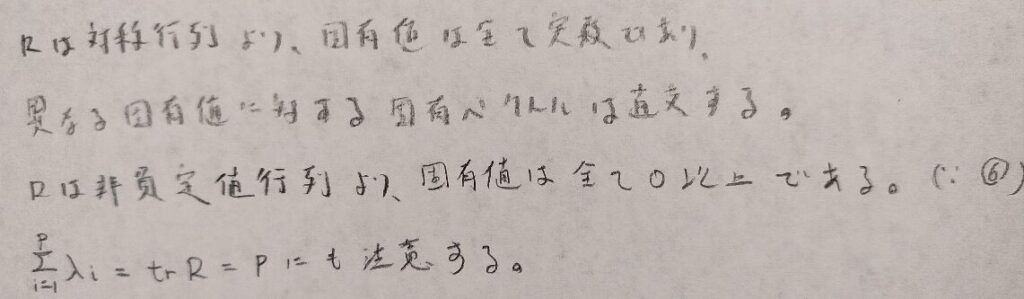 Rは対称行列より、固有値は全て実数であり、
異なる固有値に対する固有ベクトルは直交する。
Rは非負定値行列より、固有値は全て0以上である。(∵ ⑥)
$\sum_{i=1}^{p} \lambda_i = \mathrm{tr} R = p$ にも注意する。